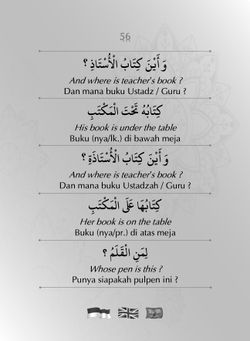 56
وَ أَيْنَ كِتَابُ الْأُسْتَاذِ ؟
And where is teacher's book ?
Dan mana buku Ustadz / Guru ?
كِتَابُهُ تَحْتَ الْمَكْتَبِ
His book is under the table
Buku (nya/lk.) di bawah meja
وَ أَيْنَ كِتَابُ الْأُسْتَاذَةِ ؟
And where is teacher's book ?
Dan mana buku Ustadzah / Guru ?
كِتَابُهَا عَلَى الْمَكْتَبِ
Her book is on the table
Buku (nya/pr.) di atas meja
لِمَنِ الْقَلَمُ ؟
Whose pen is this ?
Punya siapakah pulpen ini ?